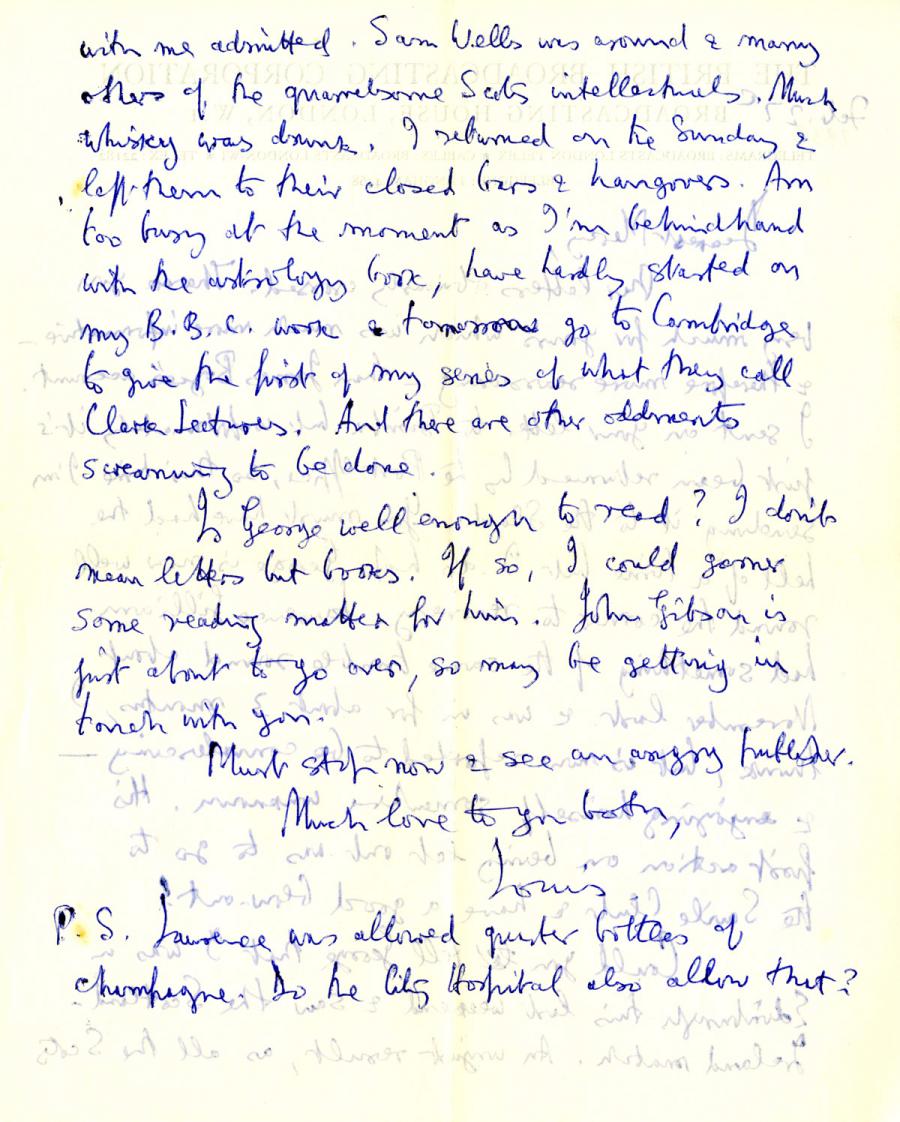 with me admitted. Sam Wells was around & many
others of the quarrelsome Scots intellectuals. Much
whiskey was drunk. I returned on the Sunday &
left them to their closed bars & hangovers. Am
too busy at the moment as I'm behindhand
with the astrology book, have hardly started on
my B.B.C. work & tomorrow go to Cambridge
to give the first of my series of what they call
Clark Lectures. And there are other oddments
screaming to be done.
Is George well enough to read? I don't
mean letters but books. If so, I could garner
some reading matter for him. John Gibson is
just about to go over, so may be getting in
touch with you.
Must stop now & see an angry publisher.
Much love to you both,
Louis
P.S. Lawrence was allowed quarter bottles of
champagne. Do the City Hospital also allow that?